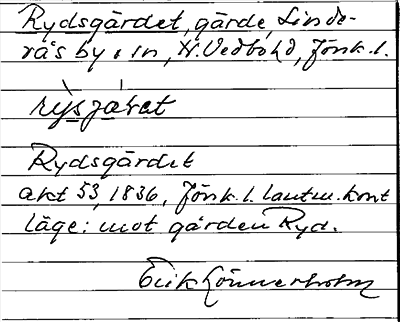 Rydsgärdet, gärde, Linde-
rås by o. sn, N. Vedbo hd, Jönk. l.
rỳsjǻ̀ṛat
Rydsgärdet
akt 53, 1836, Jönk. l. lantm. kont
läge: mot gården Ryd.
Erik Lönnerholm